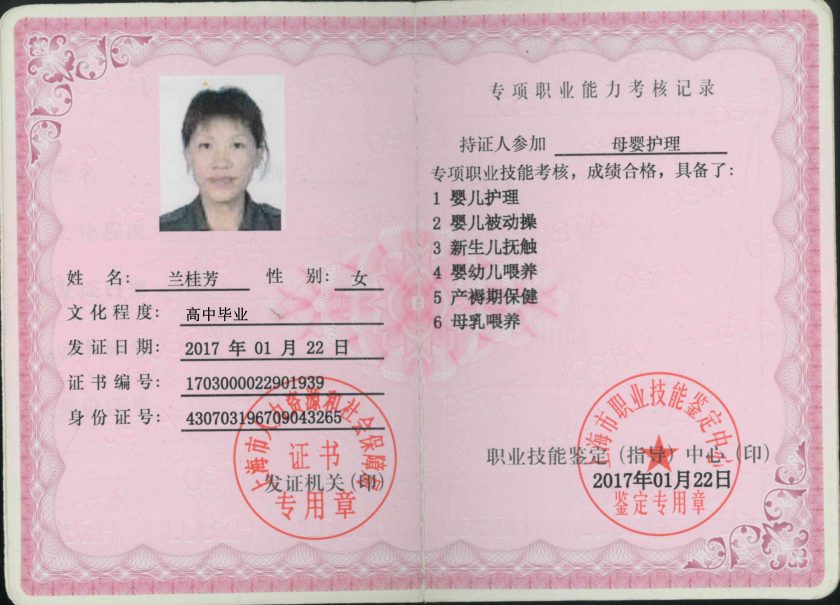 姓 名: 兰桂芳 性 别: 女
文化程度: 高中毕业
发证日期: 2017 年 01 月 22 日
证书编号: 1703000022901939
身份证号: 430703196709043265
上海市人力资源和社会保障局
证书
发证机关(印)
专用章
专项职业能力考核记录
持证人参加 母婴护理
专项职业技能考核，成绩合格，具备了:
1 婴儿护理
2 婴儿被动操
3 新生儿抚触
4 婴幼儿喂养
5 产褥期保健
6 母乳喂养
上海市职业技能鉴定中心
职业技能鉴定（指导）中心（印）
2017年01月22日
鉴定专用章